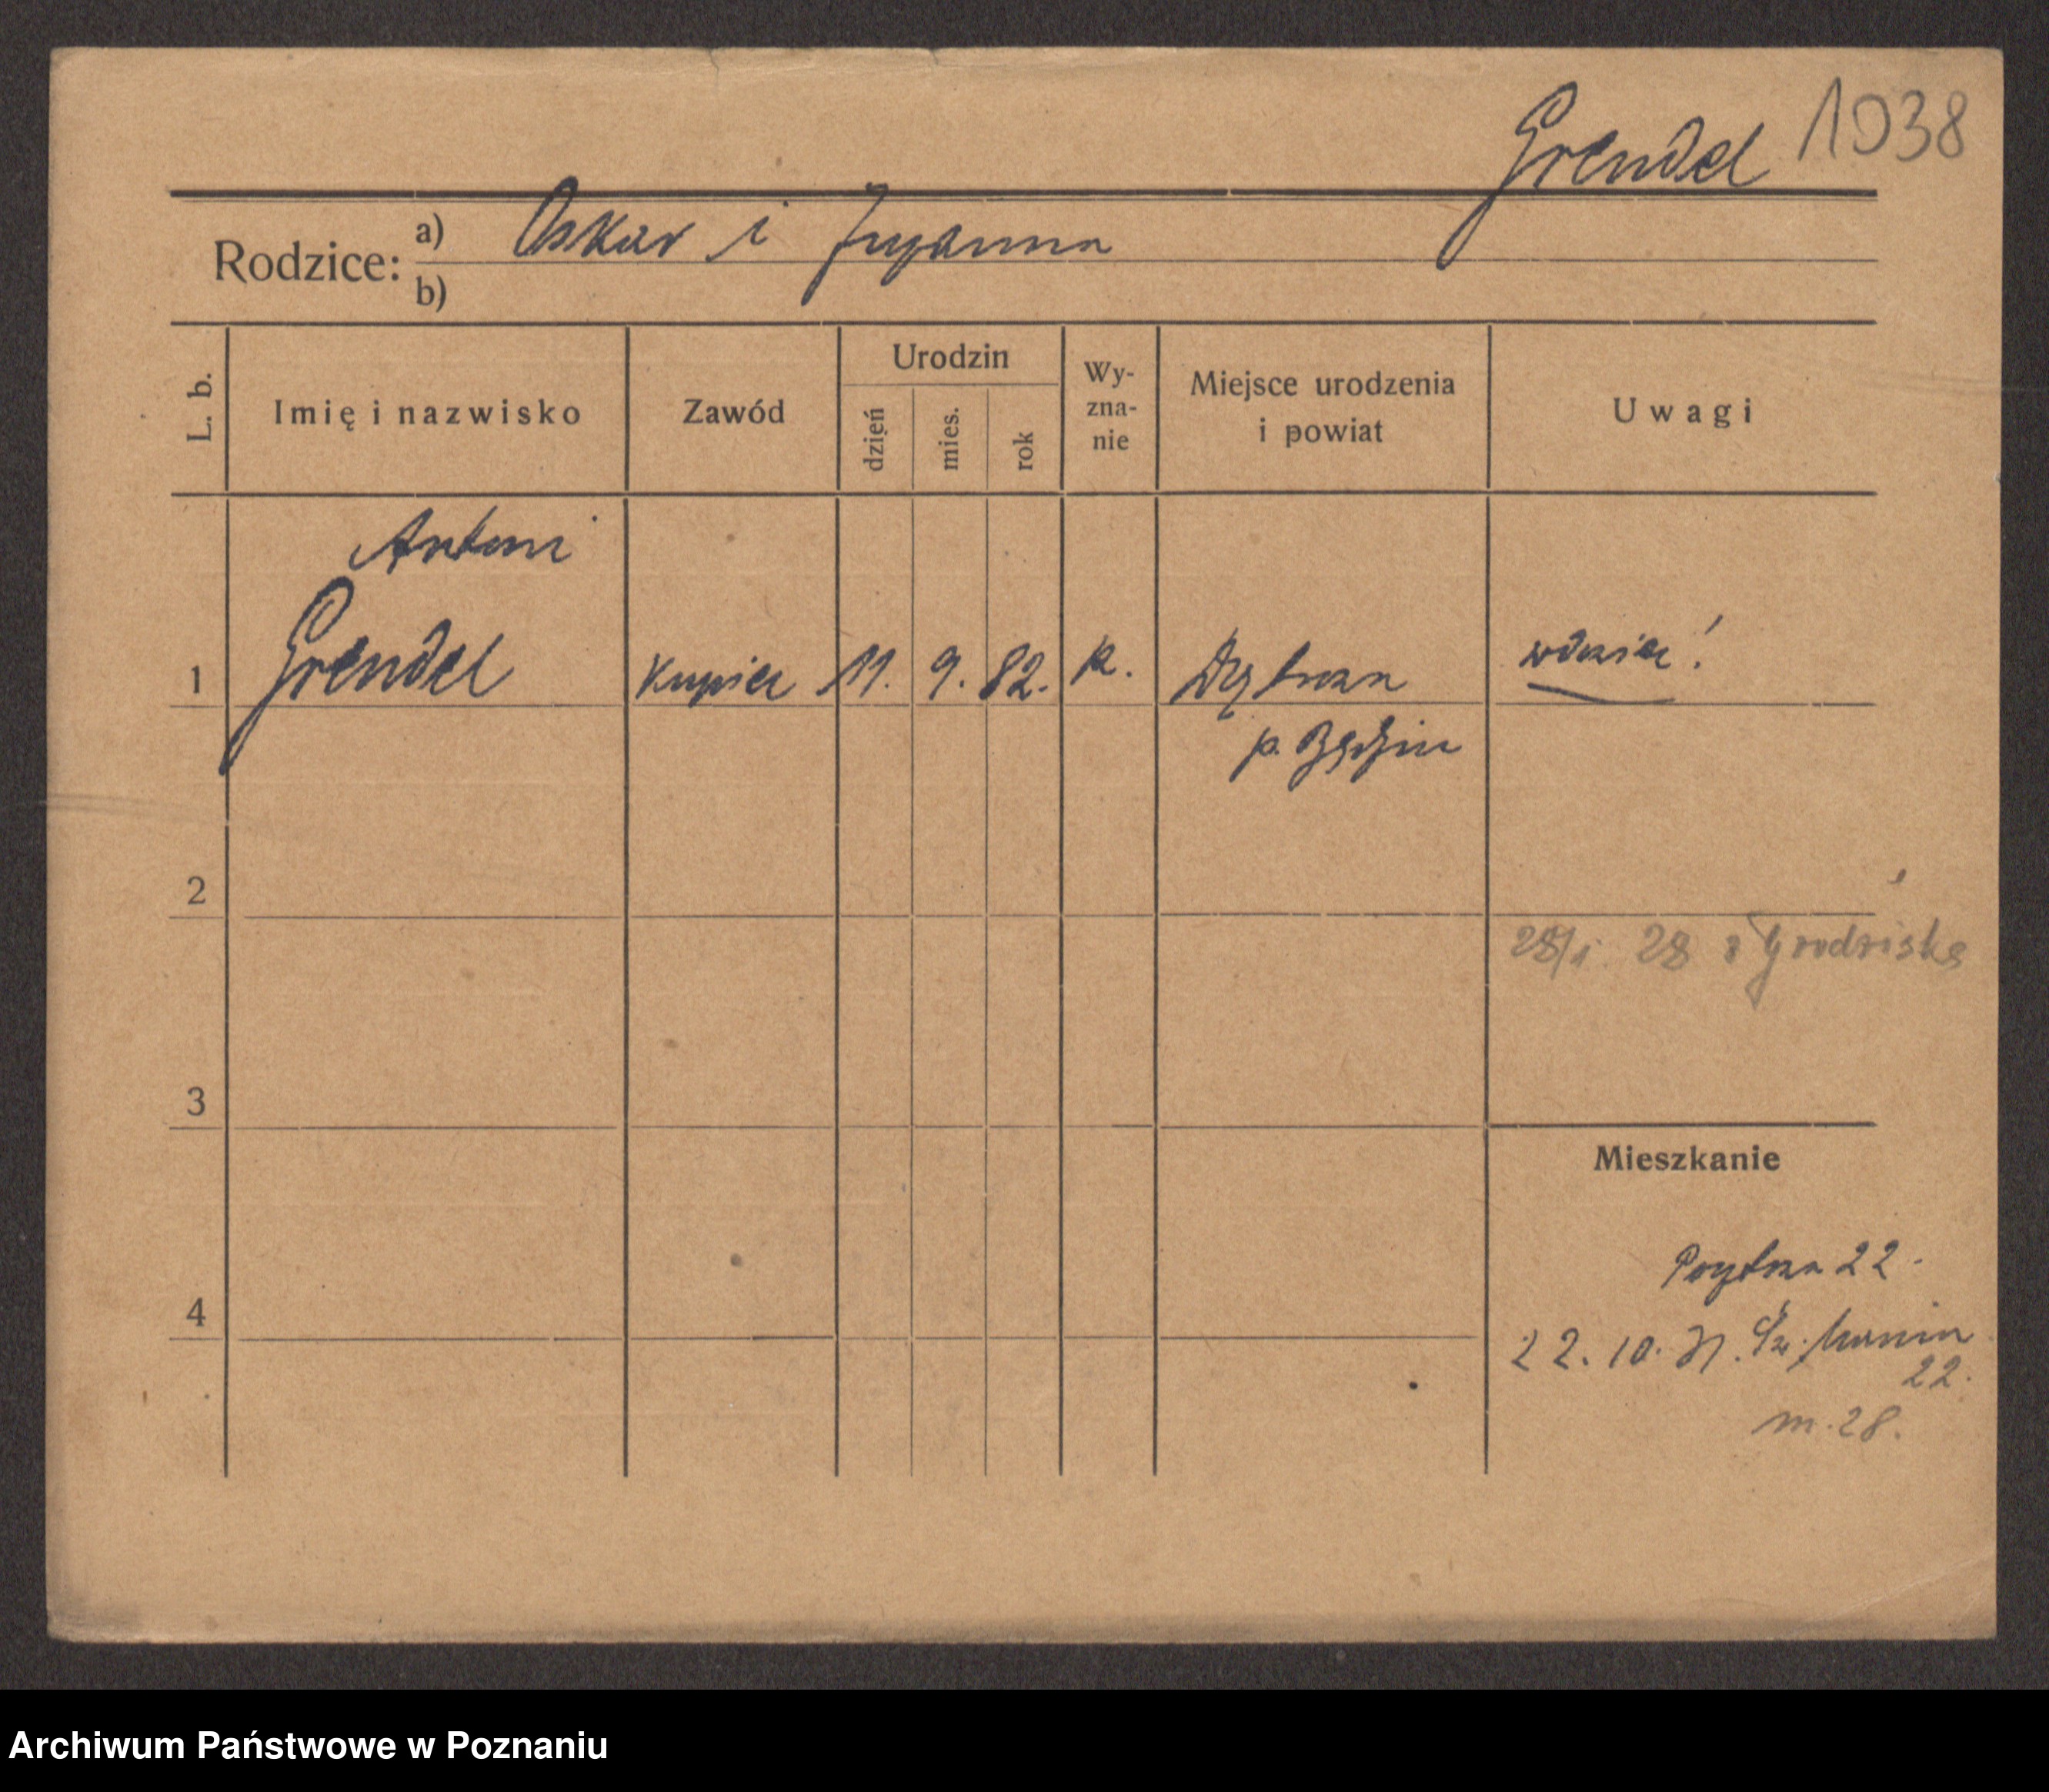 Grendel 1038
Rodzice: a) Oskar i Zuzanna
b)
L. b. Imię i nazwisko Zawód Urodzin dzień mies. rok Wy-zna-nie Miejsce urodzenia i powiat Uwagi
Antoni
1 Grendel kupiec 11. 9. 82. k. Dąbrowa wdowiec!
p. Będzin
2
28/1 28 z Grodziska
3
Mieszkanie
22.
4
22. 10. 31.
22.
m. 28.
Archiwum Państwowe w Poznaniu